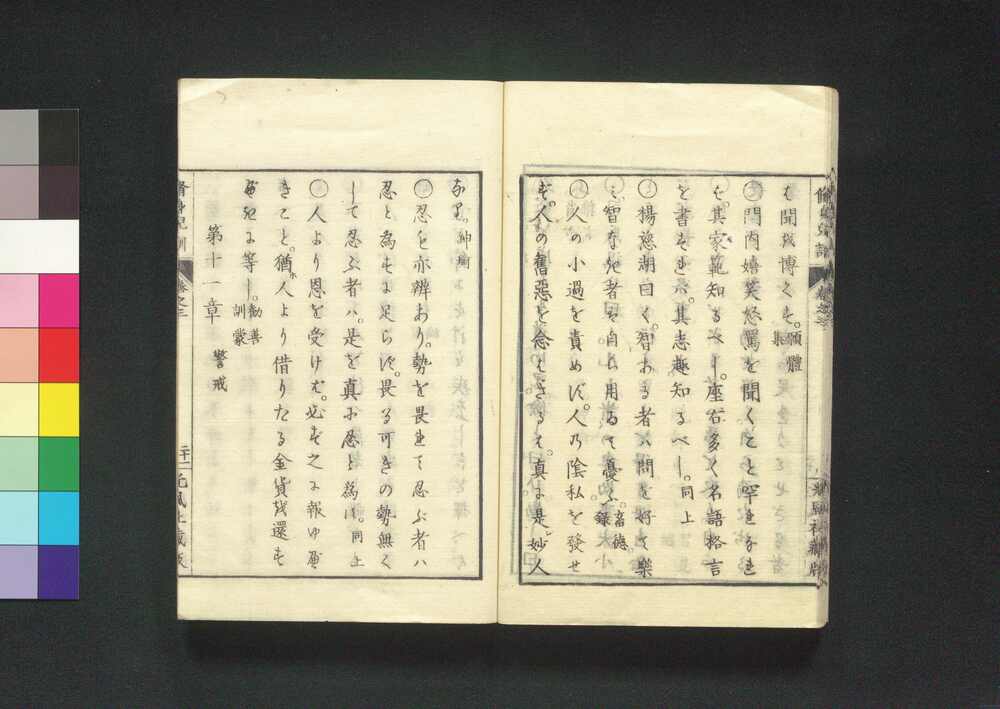 は聞或博くも。願體集
○閨内嬉笑怒罵を聞くこと罕なれ
ば。其家範知るべし。座右多く名語格言
を書もれバ。其志趣知るべし。同上
○楊慈湖曰く。智ある者ハ問を好て樂
み。智なき者は自ら用ゐて憂ふ。畜德錄
○人の小過を責めず。人乃陰私を發せ
ず。人の舊惡を念はざるは。真に是妙人
なり。紳瑜
○忍も亦辨あり。勢を畏れて忍ぶ者ハ
忍と為すに足らず。畏る可きの勢無く
して忍ぶ者ハ。是を真の忍と為す。同上
○人より恩を受けむ。必ず之に報ゆ可
きこと。猶人より借りたる金貨を還す
可きに等し。勸善訓蒙
第十一章 警戒
脩身児訓 卷之三 二十一 光風社蔵版